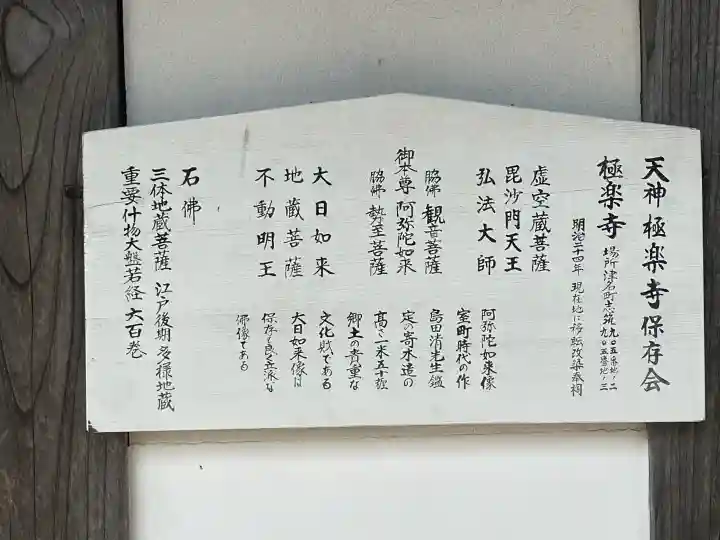 天神極楽寺保存会
極楽寺
場所津名町志筑九〇五番地ノ二
九〇五番地ノ三
明治二十四年 現在地に移転改築奉祠
虚空蔵菩薩
毘沙門天王
弘法大師
脇佛 観音菩薩
御本尊 阿弥陀如来
脇佛 勢至菩薩
大日如来
地蔵菩薩
不動明王
阿弥陀如来像
室町時代の作
島田清先生鑑
定の寄木造の
高さ一米五十糎
郷土の貴重な
文化財である
大日如来像は
保存も良く立派な
佛像である
石佛
三体地蔵菩薩 江戸後期 多様地蔵
重要什物大盤若経 六百巻